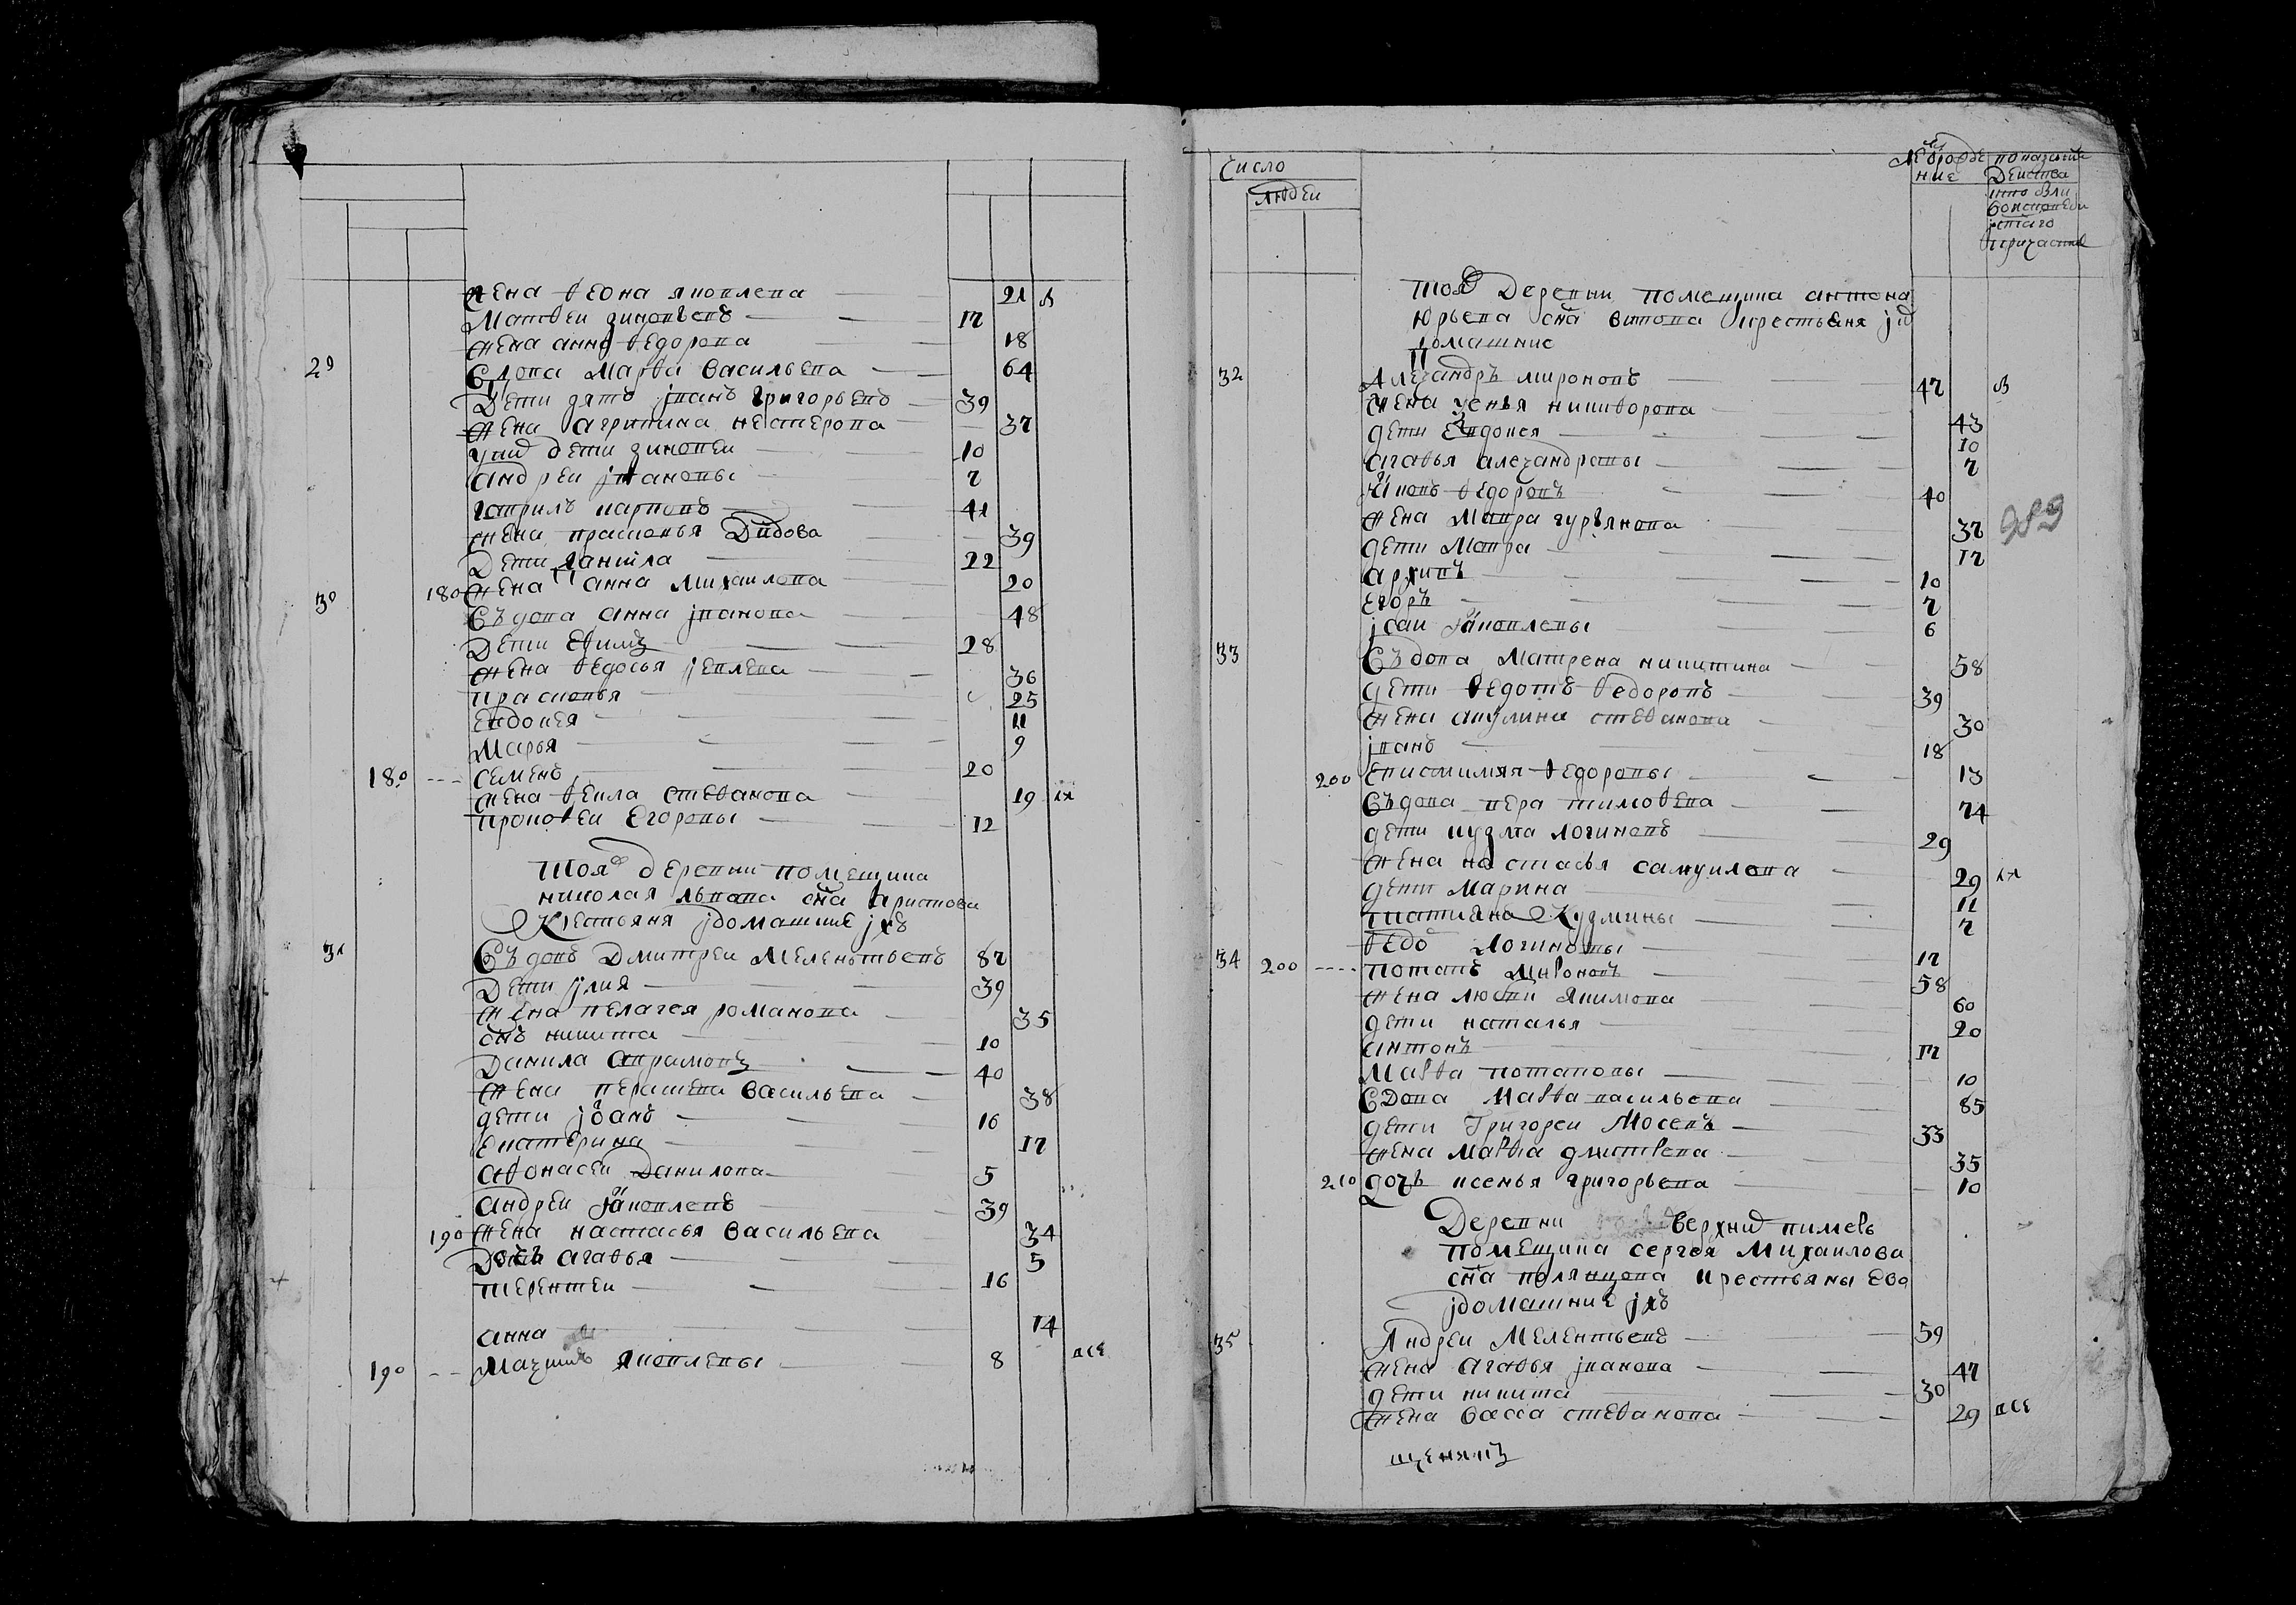 жена ѳеона яковлева 21 в
Матвеи зиновьевъ 17
жена анна ѳедорова 18
29 Вдова Марѳа Васильева 64
Дети зять јванъ григорьевъ 39
жена агрипина нестерова 37
у них дети зиновеи 10
андреи јвановы 7
гаврилъ карповъ 41
жена прасковья Дидова 39
Дети данила 22
180 жена анна михаилова 20
30 Въдова анна јванова 48
Дети еѳимъ 28
жена ѳедосья 36
прасковья 25
евдокея 11
марья 9
180 семенъ 20
жена ѳекла стеѳанова 19
прокоѳеи егоровы 12
тояж деревни помещика
николая львова сна аристова
Крестьяня јдомашние јхъ
31 Въдовъ Дмитреи Мелентьевъ 87
Дети јлия 39
жена пелагея романова 35
снъ никита 10
Данила аврамовъ 40
жена васильева 38
дети јванъ 16
екатерина 17
аѳонасеи Данилова 5
андреи яковлевъ 39
190 жена настасья васильева 34
Дочь агаѳья 5
терентеи 16
анна 14
190 Мазимъ яковлевы 8 все
Число
людеи
лето от рожде
ние
тояж деревни помещика антона
юрьева сна витова крестьяня јх
домашние
32 Алезандръ мироновъ 47 в
жена никиѳорова 43
дети евдокея 10
агаѳья алезандровы 7
яковъ ѳедоровъ 40
жена мавра гурьянова 37
989
дети мавра 17
архипъ 10
егоръ 7
јсаи яковлевы 6
33 Въдова матрена никитина 58
дети ѳедотъ ѳедоровъ 39
жена акулина стеѳанова 30
јванъ 18
200 епистимия ѳедоровы 13
Въдова вера тимоѳева 74
дети кузма логиновъ 29
жена настасья самуилова 29
дети марина 11
татияна кузмины 7
ѳедо логиновы 17
34 200 потапъ мироновъ 58
жена якимова 60
дети наталья 20
антонъ 17
марѳа потаповы 10
вдова марѳа васильева 85
дети григореи мосевъ 33
жена марѳа дмитрева 35
210 дочь ксенья григорьева 10
Деревни верхних
помещика сергея михаилова
сна крестьяны ево
јдомашние јхъ
35 Андреи Мелентьевъ 59
жена агаѳья јванова 47
дети никита 30
жена васса стеѳанова 29 все
щенникъ